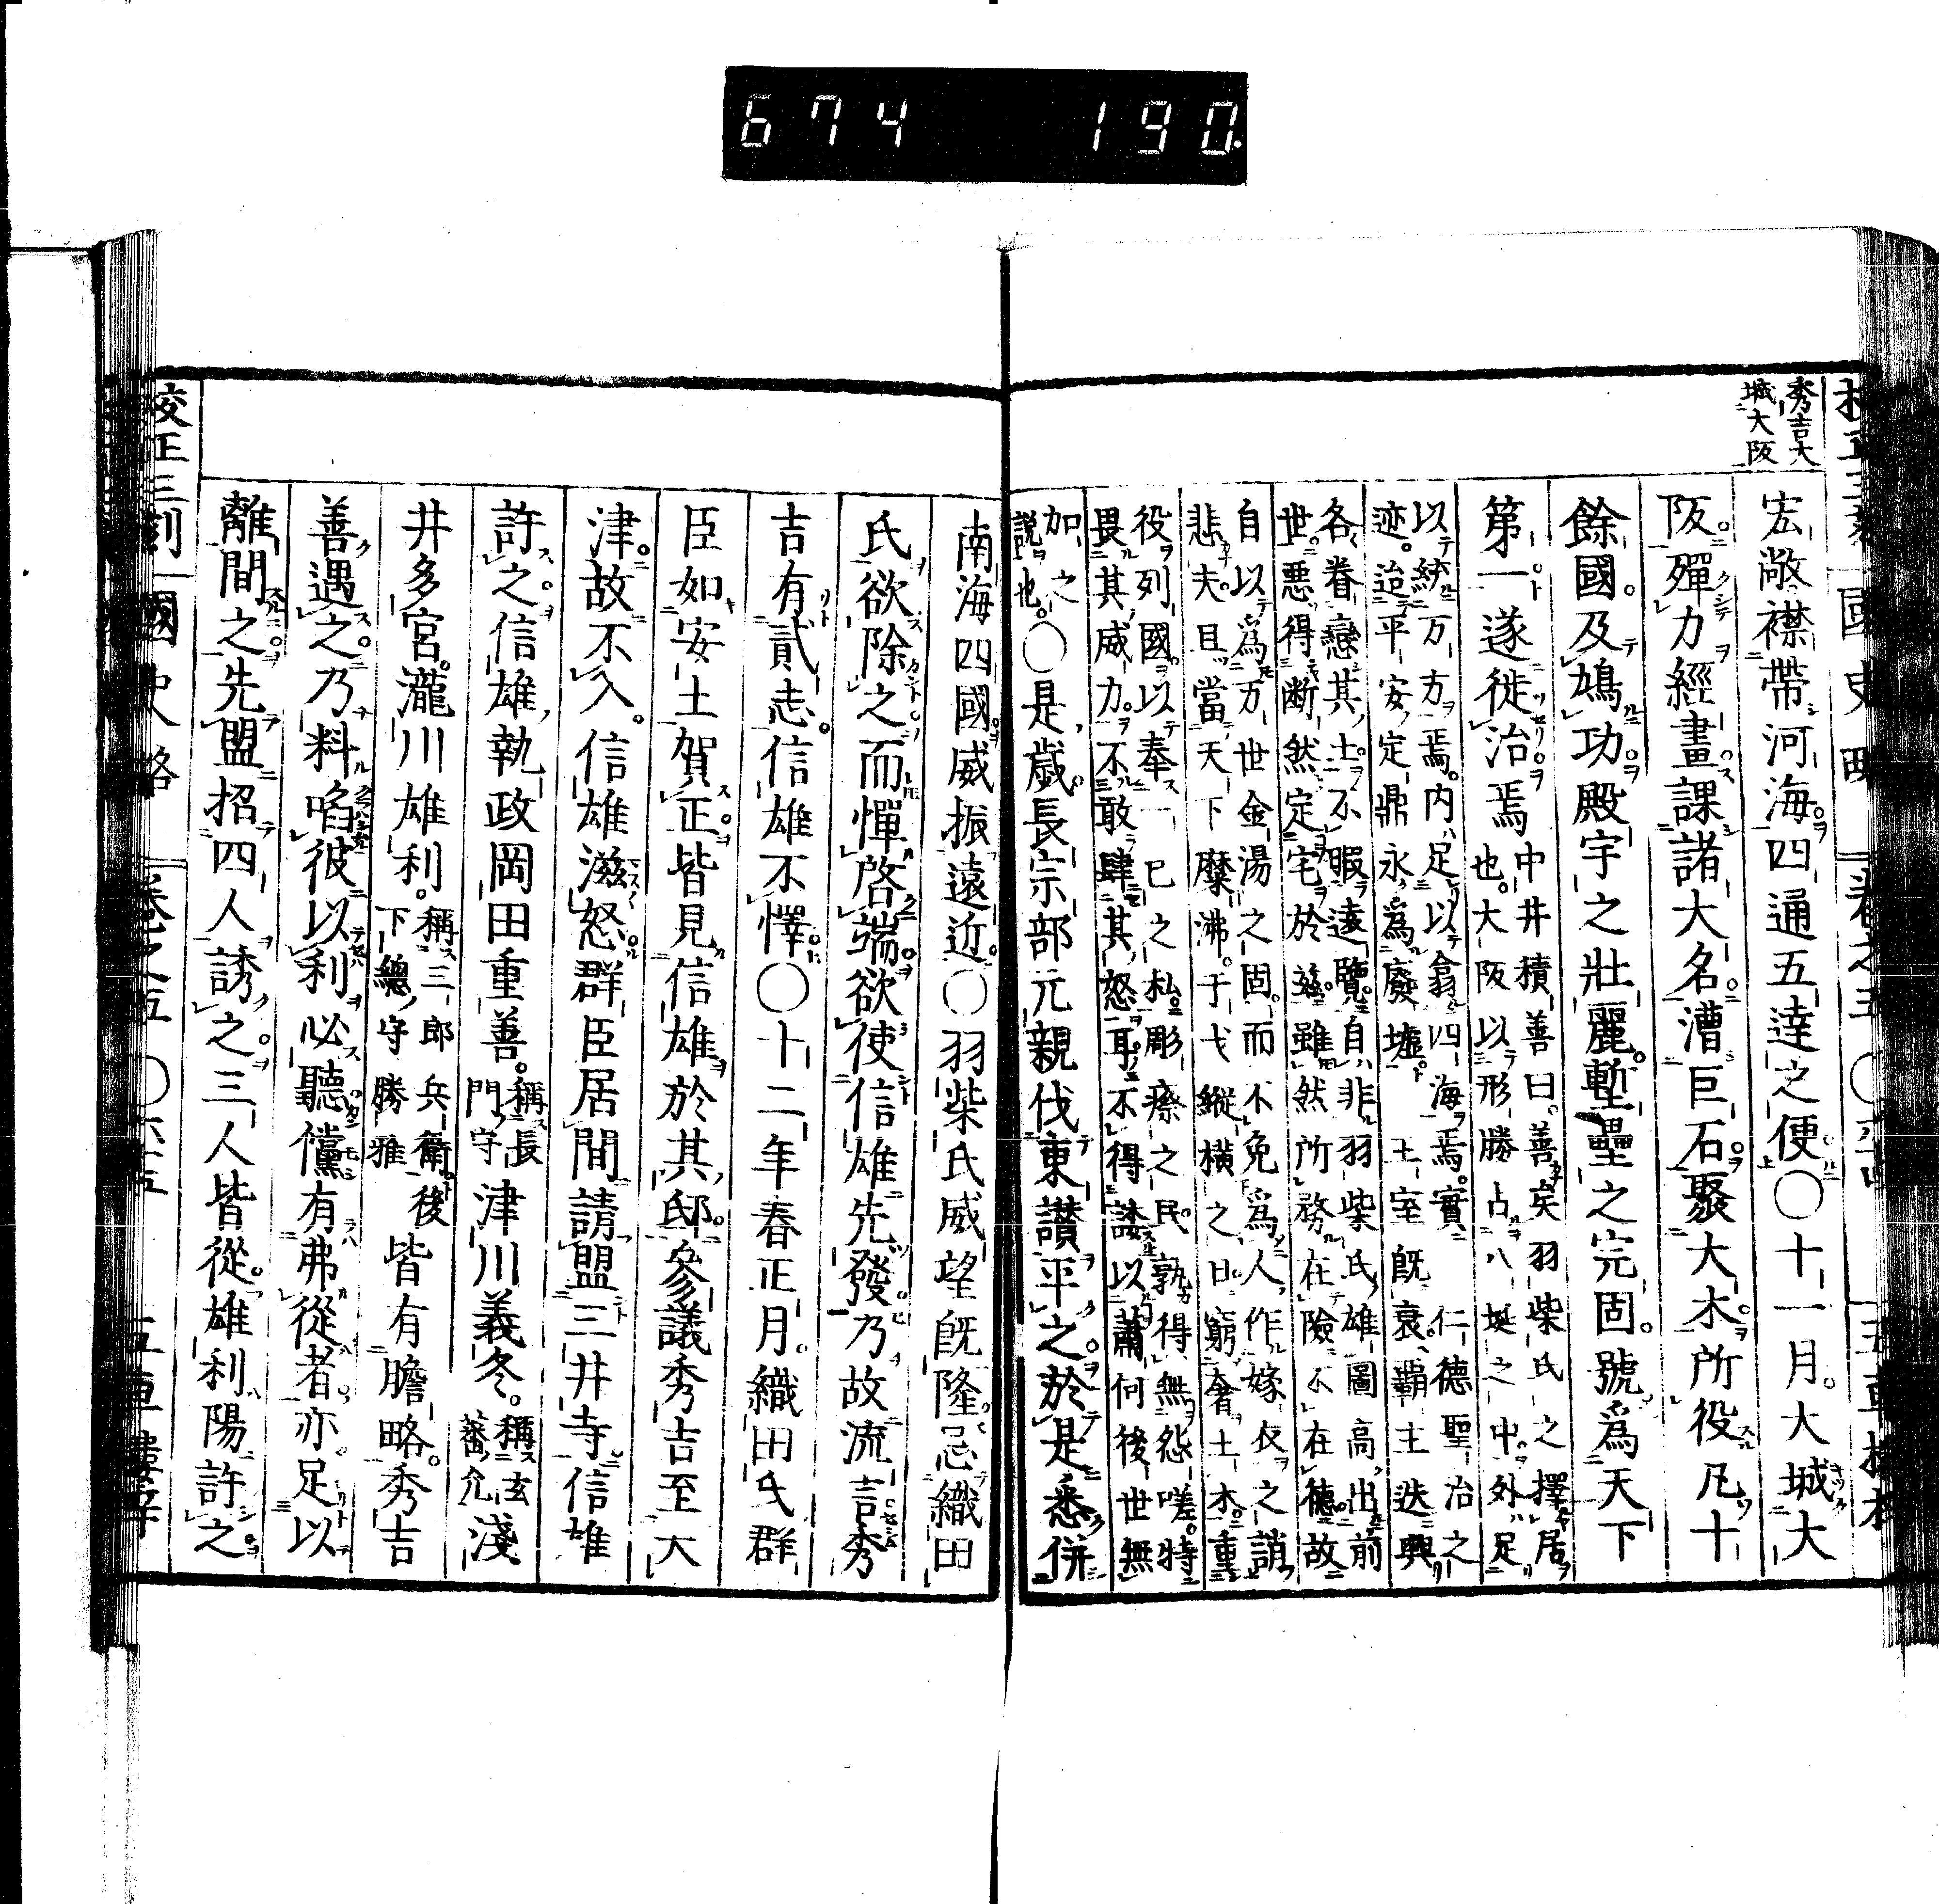 674 190
國史略 卷之五
秀吉大
城大阪
宏敞襟帶河海四通五達之便○十一月大城大
阪殫力經畫課諸大名漕巨石聚大木所役凡十
餘國及鳩功殿宇之壯麗塹壘之完固號爲天下
第一遂徙治焉
中井積善曰善矣羽柴氏之擇居
也大阪以形勝占八埏之中外足
以統万方焉内足以翕四海焉實仁德聖治之
迹迨平安定鼎永爲廢墟王室既衰覇主迭興
各眷戀其土不暇遠覽自非羽柴氏雄圖高出前
世惡得断然定宅於玆雖然所務在險不在德故
自以爲万世金湯之固而不免爲人作嫁衣之誚
悲夫且當天下麋沸于戈縱横之日窮奢土木重
役列國以奉一已之私彫瘵之民孰得無怨嗟特
畏其威力不敢肆其怒耳不得諉以蕭何後世無
加之
説也
○是歳長宗部元親伐東讃平之於是悉併
南海四國威振遠近○羽柴氏威望既隆忌織田
氏欲除之而憚啓端欲使信雄先發乃故流言秀
吉有貳志信雄不懌○十二年春正月織田氏群
臣如安土賀正皆見信雄於其邸參議秀吉至大
津故不入信雄滋怒群臣居間請盟三井寺信雄
許之信雄執政岡田重善
稱長
門守
津川義冬
稱玄
蕃允
淺
井多宮瀧川雄利
稱三郎兵衛後
下總守勝雅
皆有膽略秀吉
善遇之乃料啗彼以利必聽儻有弗從者亦足以
離間之先盟招四人誘之三人皆從雄利陽許之
校正三刻 國史略 卷之五 ○六十五 五車樓梓